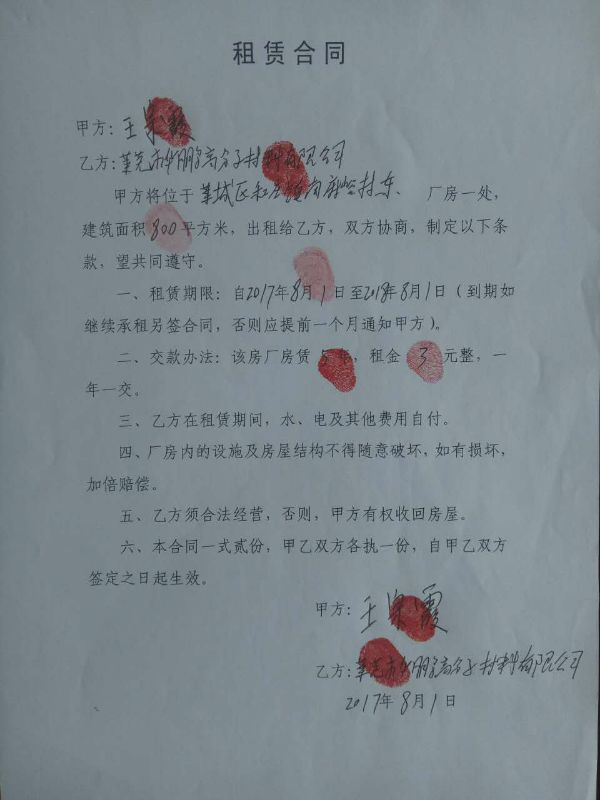 租赁合同
甲方：王霞
乙方：莱芜市华鹏高分子材料有限公司
甲方将位于莱城区和庄镇向麻峪村东、厂房一处，
建筑面积800平方米，出租给乙方，双方协商，制定以下条
款，望共同遵守。
一、租赁期限：自2017年8月1日至2018年8月1日（到期如
继续承租另签合同，否则应提前一个月通知甲方）。
二、交款办法：该房厂房赁5年，租金3元整，一
年一交。
三、乙方在租赁期间，水、电及其他费用自付。
四、厂房内的设施及房屋结构不得随意破坏，如有损坏，
加倍赔偿。
五、乙方须合法经营，否则，甲方有权收回房屋。
六、本合同一式贰份，甲乙双方各执一份，自甲乙双方
签定之日起生效。
甲方：王霞
乙方：莱芜市华鹏高分子材料有限公司
2017年8月1日